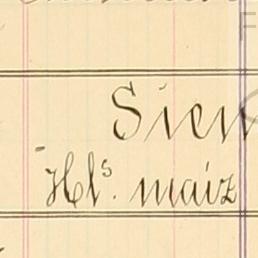 Siem
Hls. maiz